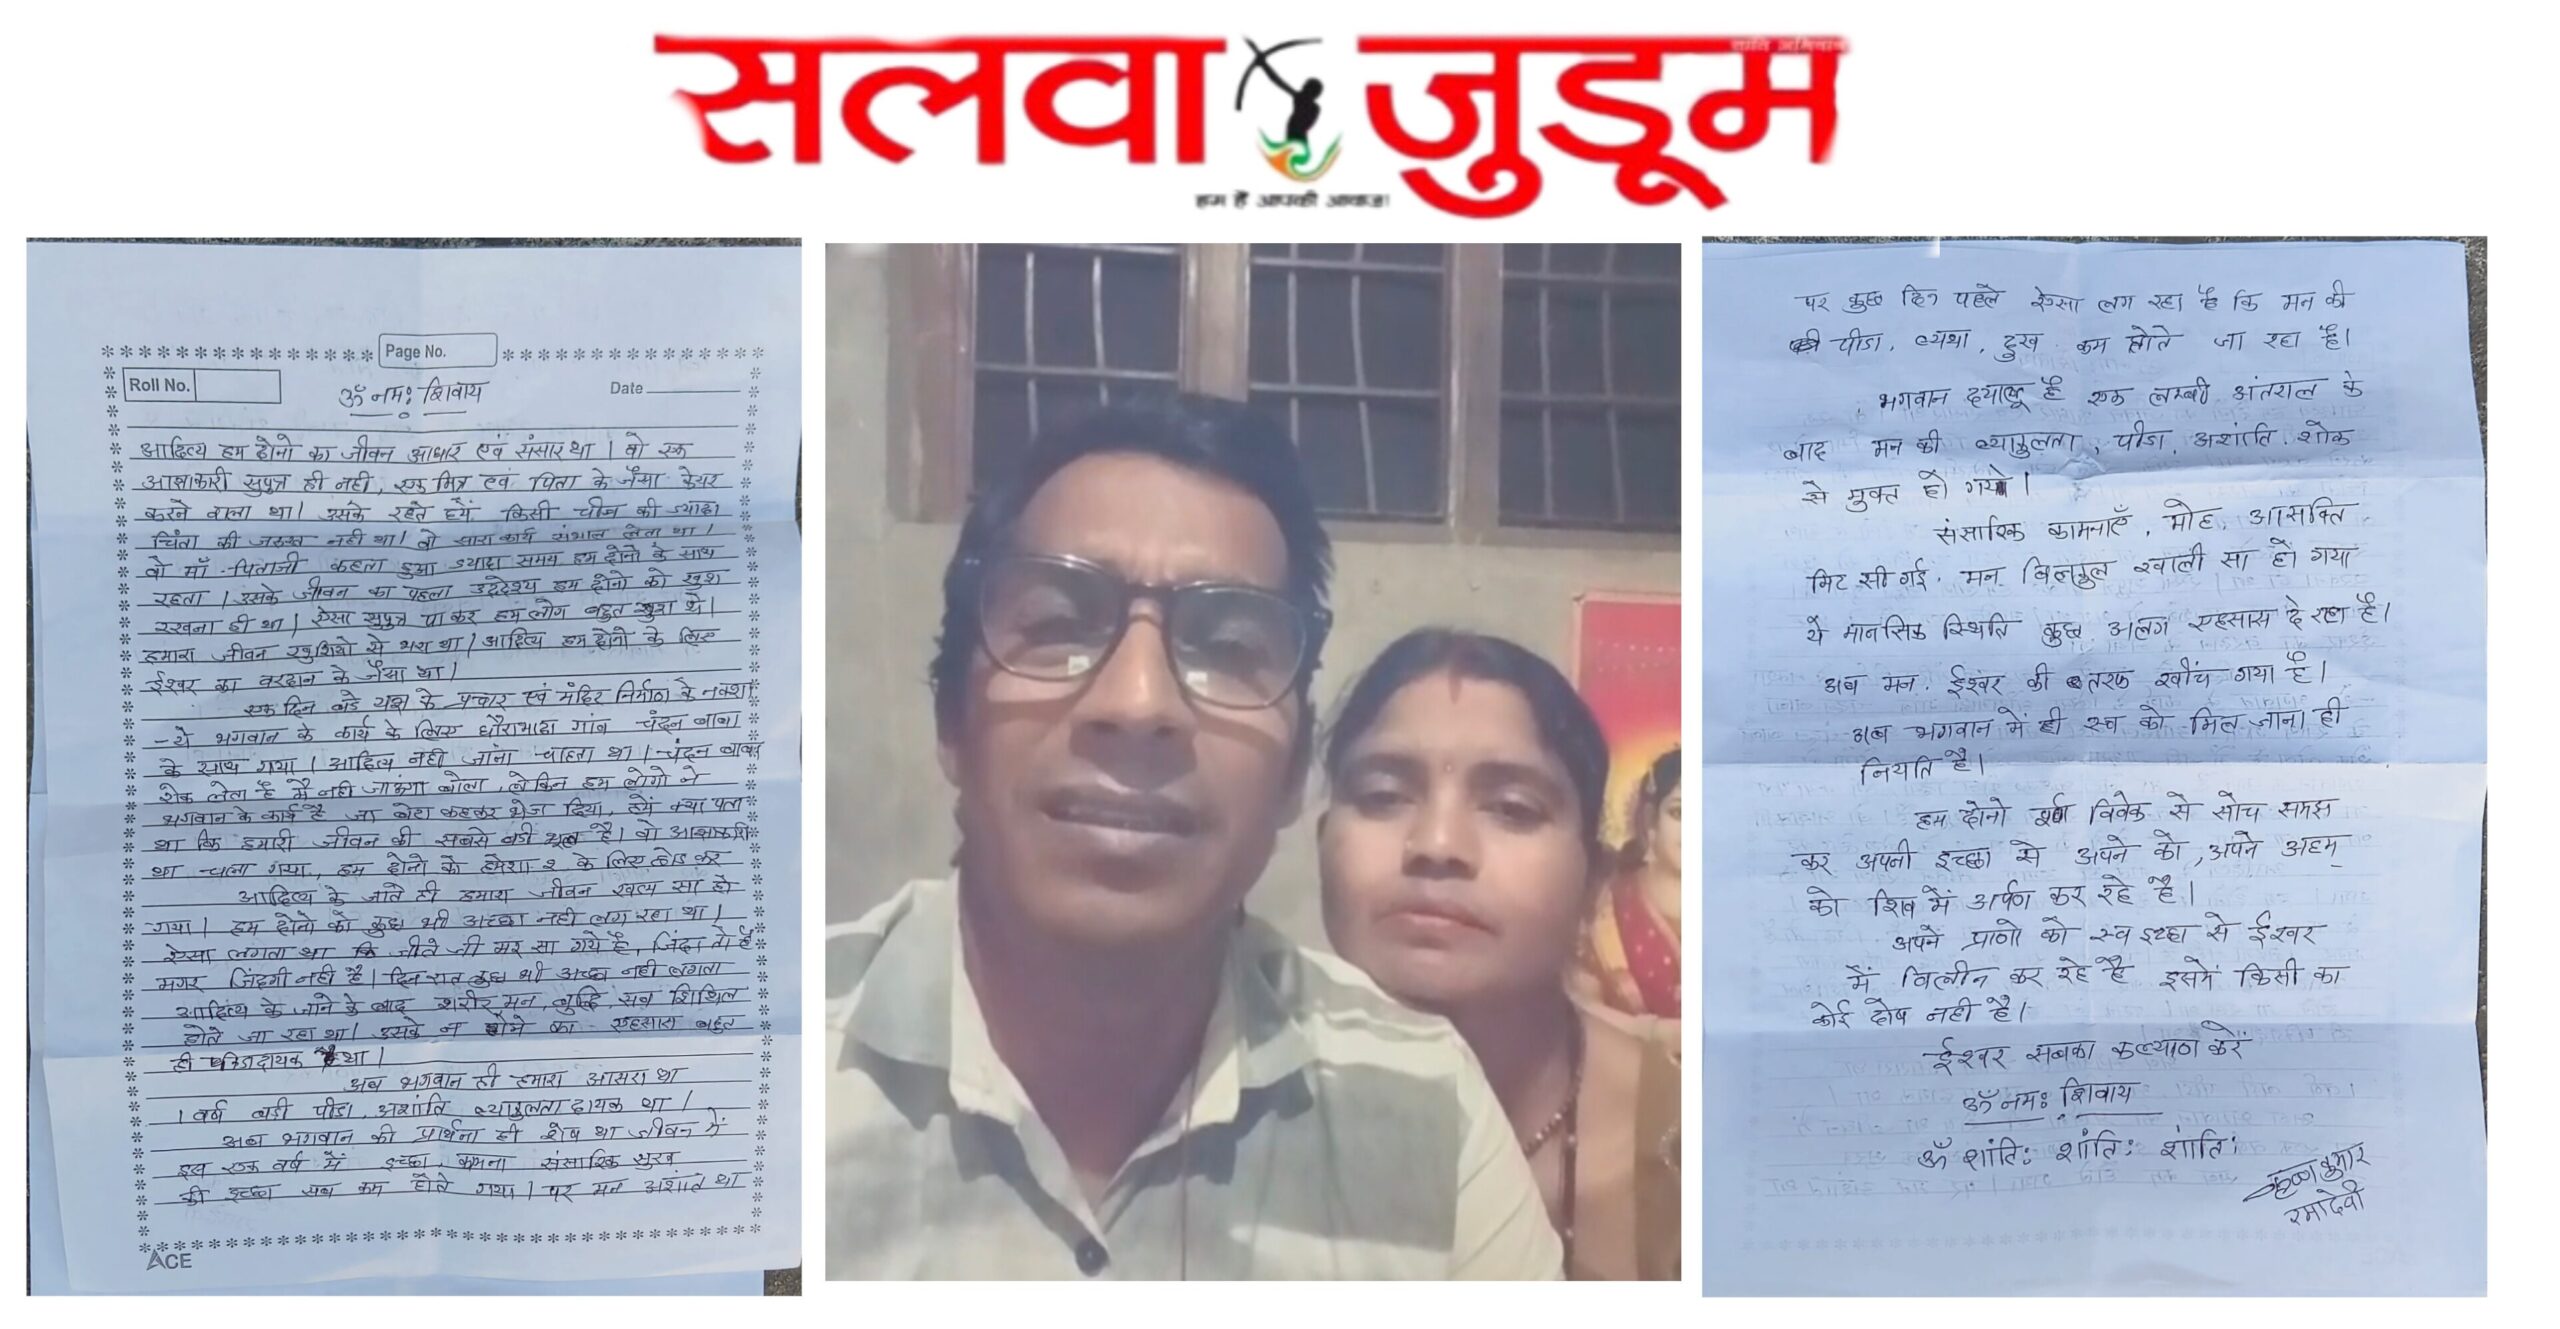 सलवा जुडूम
शांति अभियान
हम हैं आपकी आवाज़
Page No.
Roll No.
Date
ॐ नमः शिवाय
आदित्य हम दोनो का जीवन आधार एवं संसार था । वो एक
आज्ञाकारी सुपुत्र ही नही, एक मित्र एवं पिता के जैसा केयर
करने वाला था। उसके रहते हमें किसी चीज की ज्यादा
चिंता की जरुरत नही था। वो सारा कार्य संभाल लेता था।
वो माँ-पिताजी कहता हुआ ज्यादा समय हम दोनो के साथ
रहता । उसके जीवन का पहला उद्देश्य हम दोनो को खुश
रखना ही था। ऐसा सुपुत्र पा कर हम लोग बहुत खुश थे।
हमारा जीवन खुशियो से भरा था। आदित्य हम दोनो के लिए
ईश्वर का वरदान के जैसा था।
एक दिन बडे यज्ञ के प्रचार एवं मंदिर निर्माण के नक्शा
-ये भगवान के कार्य के लिए धौराभाठा गांव चंदन बाबा
के साथ गया । आदित्य नही जाना चाहता था। चंदन बाबा
रोक लेता है मैं नही जाऊंगा बोला, लेकिन हम लोगो ने
भगवान के कार्य है जा बेटा कहकर भेज दिया, हमें क्या पता
था कि हमारी जीवन की सबसे बडी भूल है। वो आज्ञाकारी
था चला गया, हम दोनो को हमेशा २ के लिए छोड कर
आदित्य के जाते ही हमारा जीवन खत्म सा हो
गया। हम दोनो को कुछ भी अच्छा नही लग रहा था।
ऐसा लगता था कि जीते जी मर सा गये है, जिंदा तो है
मगर जिंदगी नही है। दिन रात कुछ भी अच्छा नही लगता
आदित्य के जाने के बाद शरीर, मन, बुद्धि, सब शिथिल
होते जा रहा था। उसके न होने का एहसास बहुत
ही दायक था।
अब भगवान ही हमारा आसरा था
1 वर्ष बडी पीडा, अशांति व्याकुलता दायक था।
अब भगवान की प्रार्थना ही शेष था जीवन में
इस एक वर्ष में इच्छा, कामना संसारिक सुख
की इच्छा सब कम होते गया। पर मन अशांत था
पर कुछ दिन पहले ऐसा लग रहा है कि मन की
पीडा, व्यथा, दुख कम होते जा रहा है।
भगवान दयालू है एक लम्बी अंतराल के
बाद मन की व्याकुलता, पीडा, अशांति, शोक
से मुक्त हो गया।
संसारिक कामनाएँ, मोह, आसक्ति
मिट सी गई, मन बिलकुल खाली सा हो गया
ये मानसिक स्थिति कुछ अलग एहसास दे रहा है।
अब मन, ईश्वर की तरफ खींच गया है।
अब भगवान में ही स्व को मिल जाना ही
नियति है।
हम दोनो पूर्ण विवेक से सोच समझ
कर अपनी इच्छा से अपने को, अपने अहम्
को शिव में अर्पण कर रहे है।
अपने प्राणो को स्व इच्छा से ईश्वर
में विलीन कर रहे है इसमें किसी का
कोई दोष नही है।
ईश्वर सबका कल्याण करें
ॐ नमः शिवाय
ॐ शांतिः शांतिः शांतिः
कृष्ण कुमार
रमादेवी
ACE